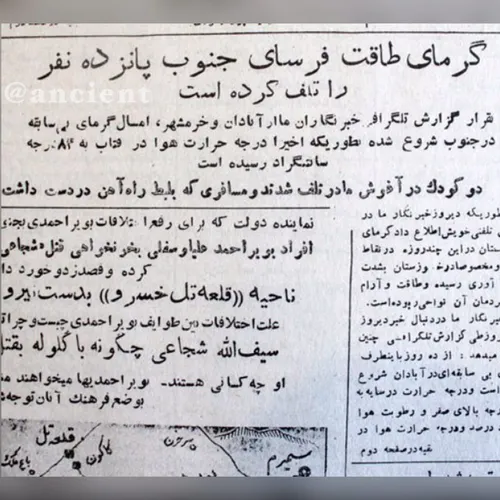 گرمای طاقت فرسای جنوب پانزده نفر
را تلف کرده است
@ancient
بقرار گزارش تلگرافی خبرنگاران ما از آبادان و خرمشهر، امسال گرمای بی سابقه
درجنوب شروع شده بطوریکه اخیرا درجه حرارت هوا در آفتاب به ۸۴ درجه
سانتیگراد رسیده است
دو کودك در آغوش مادر تلف شدند و مسافری که بلیط راه آهن در دست داشت
نماینده دولت که برای رفع اختلافات بویراحمدی
افراد بویر احمد علیا و سفلی بخونخواهی قتل شجاعی
کرده و قصد زد و خورد دا
ناحیه ((قلعه تل خسرو)) بدست نیرو
علت اختلافات بین طوایف بویر احمدی چیست و چرا
سیف الله شجاعی چگونه با گلوله بقتل
او چه کسانی هستند. بویر احمدیها میخواهند
بوضع فرهنگ آنان توجه
قلعه تل
سمیرم
بطوریکه دیروز خبر نگار ما در
تلفنی خویش اطلاع داد گرمای
ستان در این چند روزه در نقاط
و مخصوصا در خوزستان بشدت
آوری رسیده و طاقت و آرام
مردمان آن نواحی ربوده است.
خبر نگار ما در دنبال خبر دیروز
طی گزارش تلگرافی چنین
میدهد: از ده روز باینطرف
بی سابقه ای در آبادان شروع
ست و درجه حرارت در سایه به
درجه بالای صفر و رطوبت هوا
درصد و درجه حرارت هوا در
بقیه در صفحه دوم